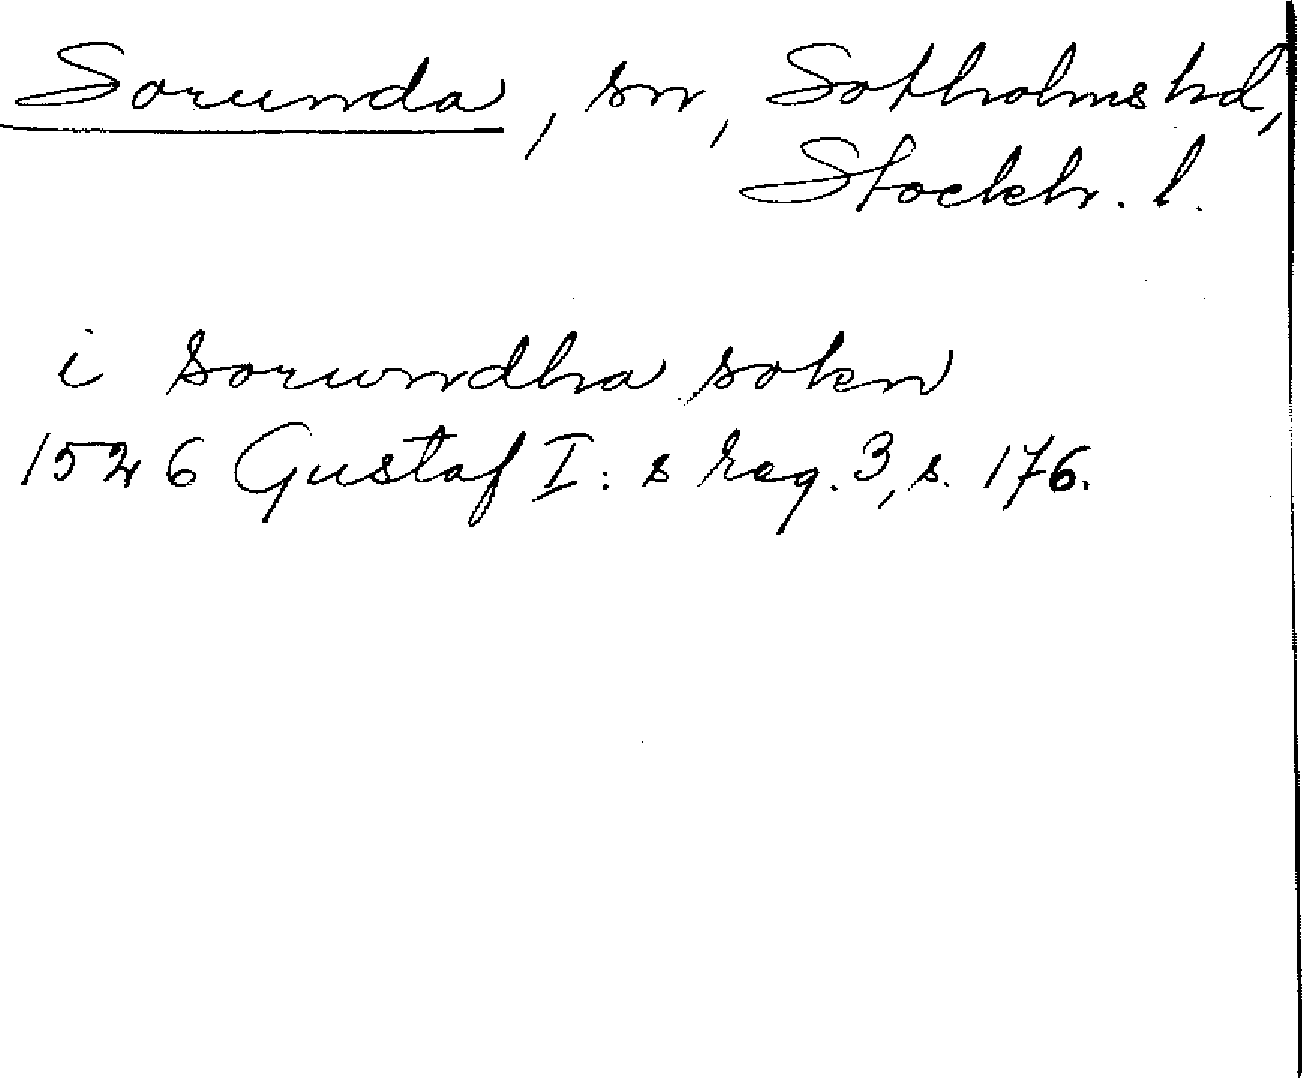 Sorunda, sn, Sotholms hd,
Stockh. l.
i Sorundha sokn
1526 Gustaf I:s reg. 3, s. 176.